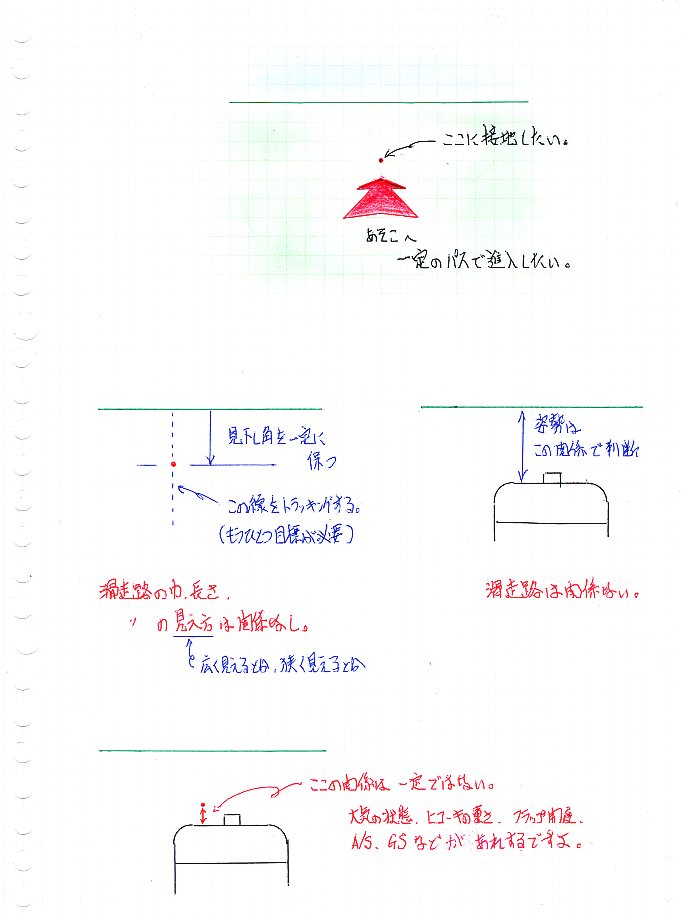 ここに接地したい。
あそこへ
一定のパスで進入したい。
見下し角を一定に
保つ
この線をトラッキングする。
(もうひとつ目標が必要)
姿勢は
この関係で判断
滑走路の巾、長さ、
〃 の見え方は関係なし。
広く見えるとか、狭く見えるとか
滑走路は関係ない。
ここの関係は一定ではない。
大気の状態、ヒコーキの重さ、フラップ角度、
A/S、GSなどがあれするですよ。